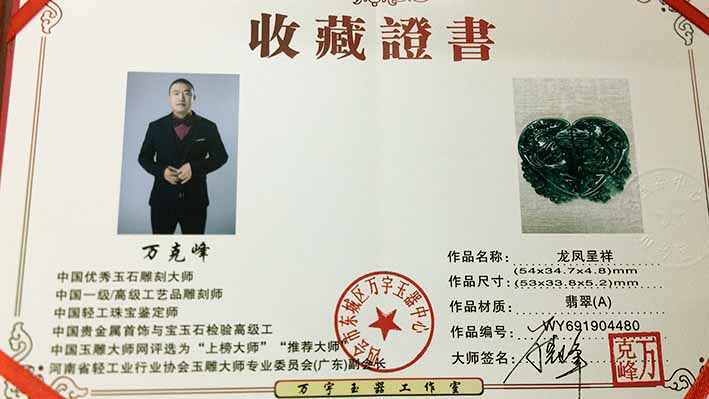 收藏證書
万克峰
中国优秀玉石雕刻大师
中国一级/高级工艺品雕刻师
中国轻工珠宝鉴定师
中国贵金属首饰与宝玉石检验高级工
中国玉雕大师网评选为“上榜大师”“推荐大师”
河南省轻工业行业协会玉雕大师专业委员会(广东)副会长
四会市东城区万宇玉器中心
作品名称: 龙凤呈祥
作品尺寸: (54x34.7x4.8)mm
(53x33.8x5.2)mm
作品材质: 翡翠(A)
作品编号: WY691904480
大师签名: 万克峰
万克峰
万宇玉器工作室